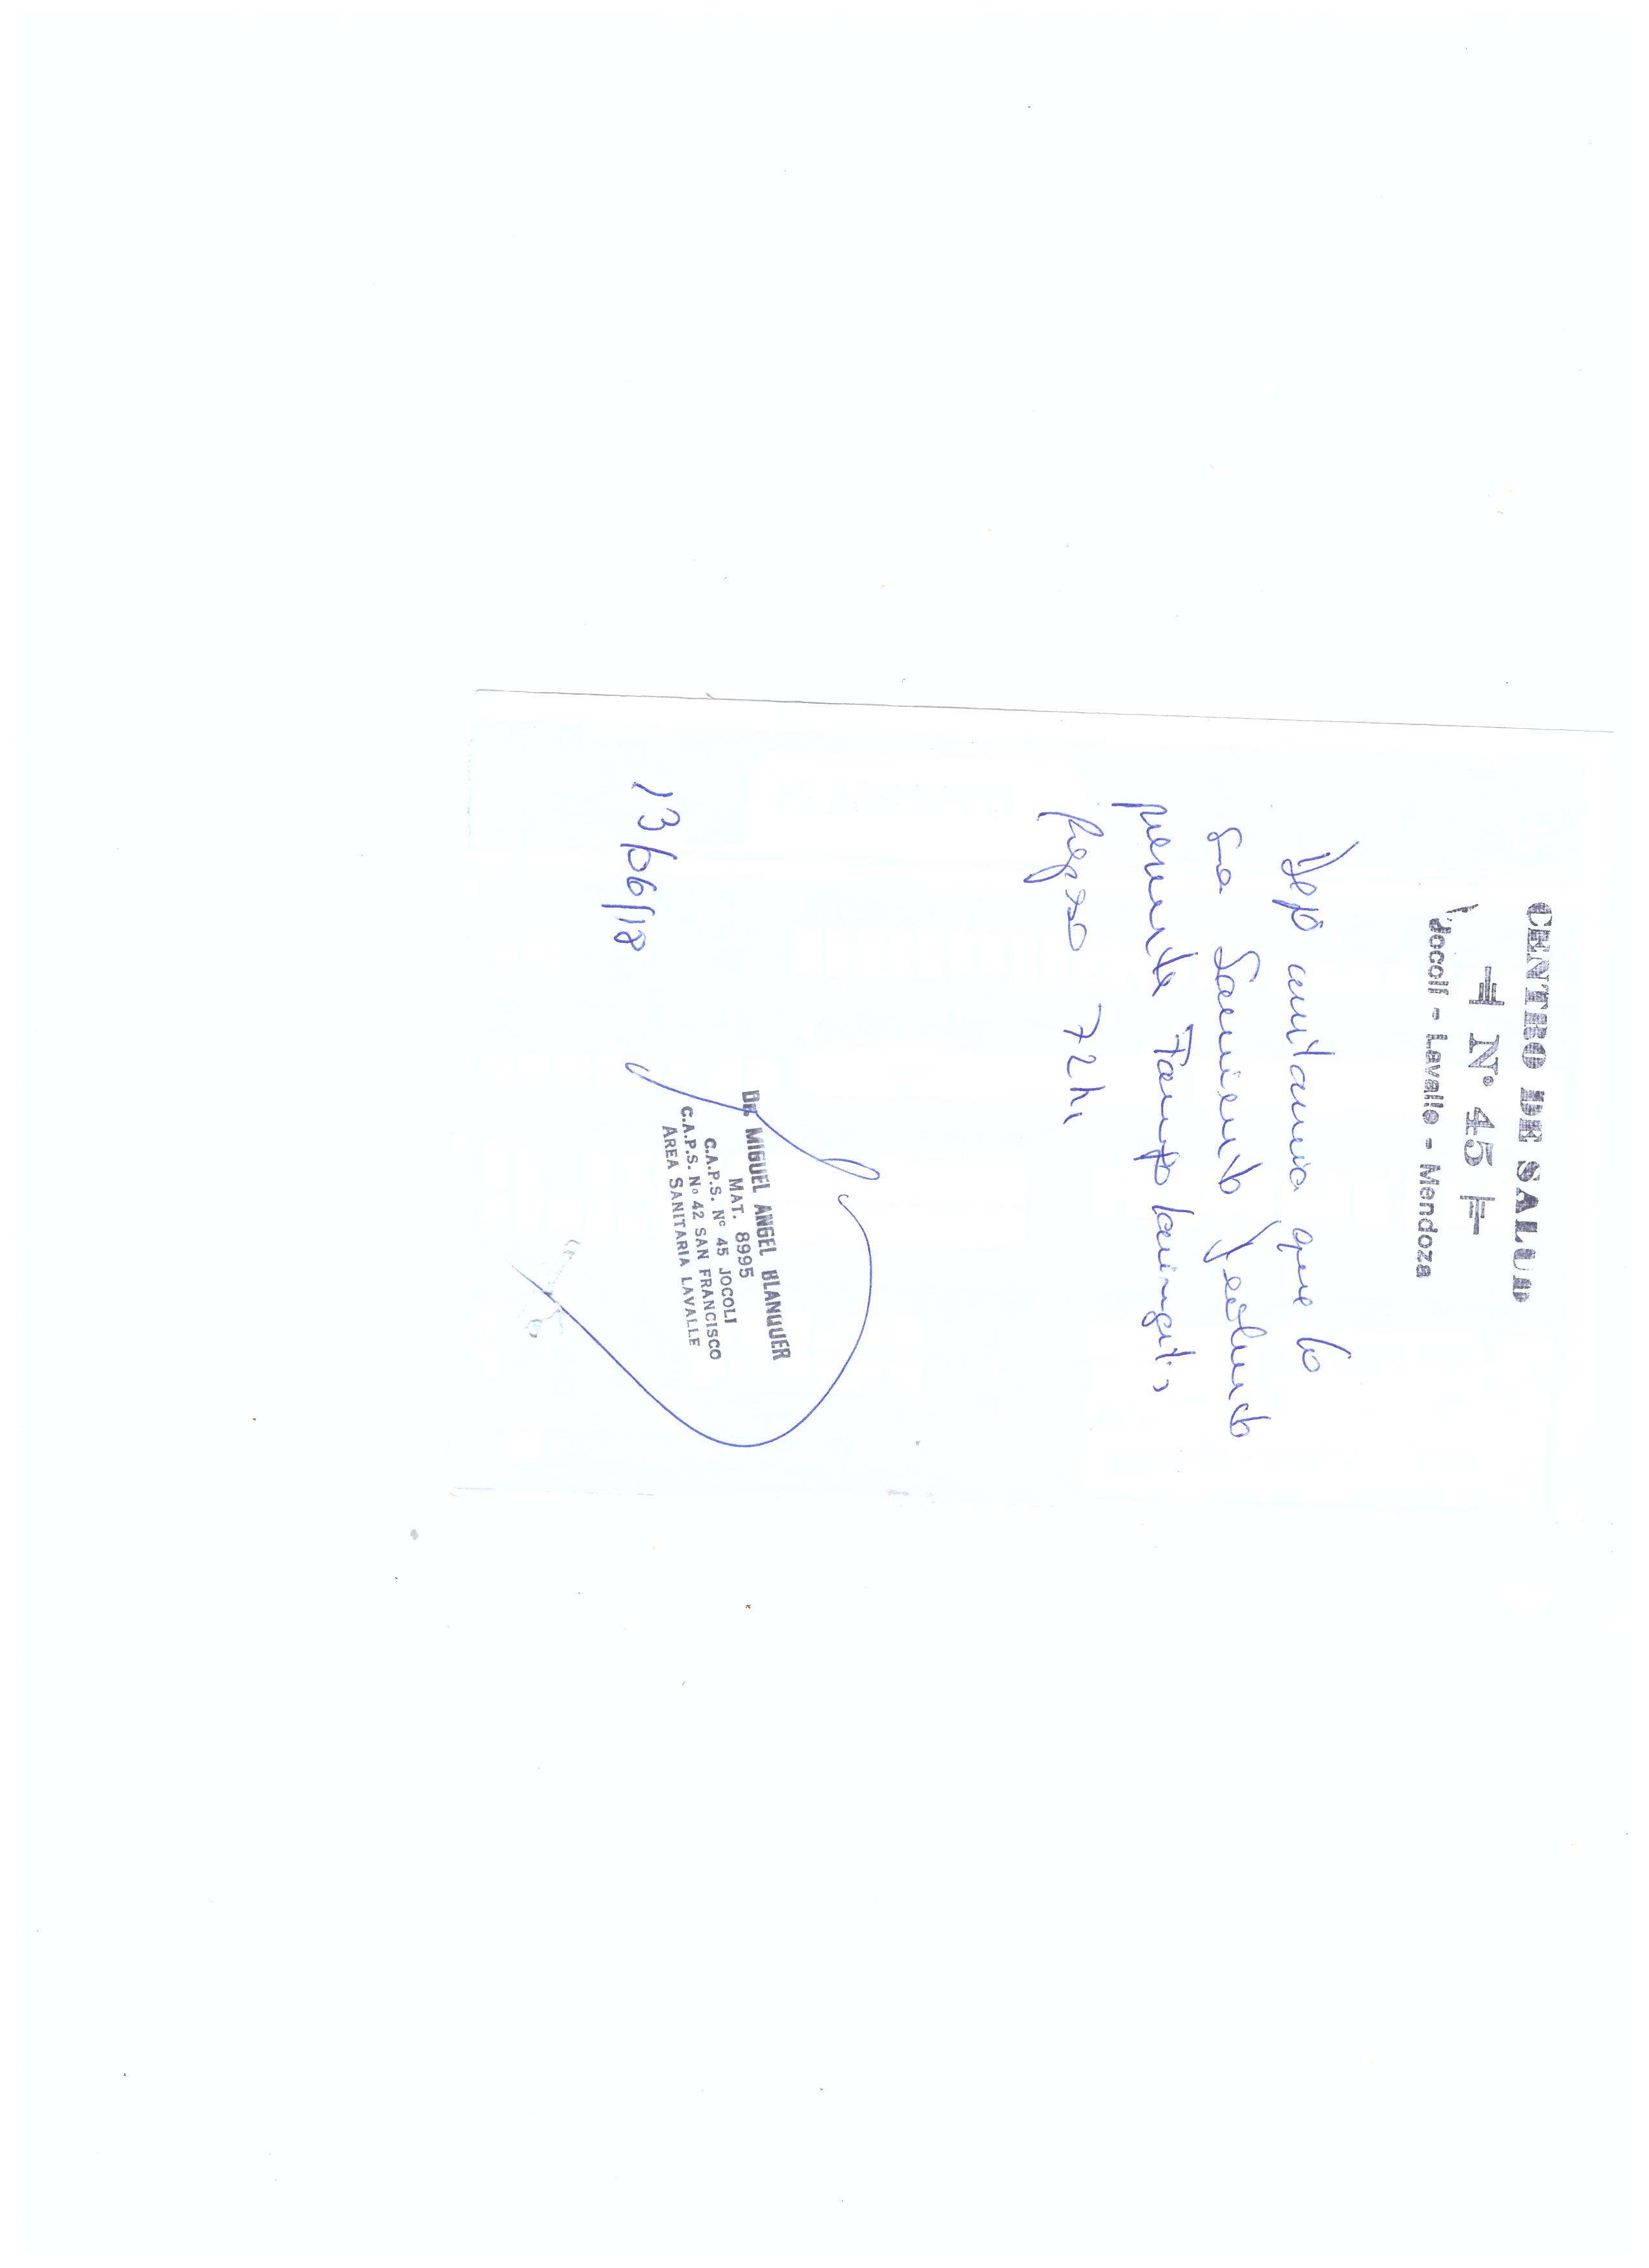 CENTRO DE SALUD
N.º 45
Jocolí - Lavalle - Mendoza
Dejo constancia que la
Sra Sarmiento
presenta Faringo laringitis
Reposo 72hs
13/06/18
Dr. MIGUEL ANGEL BLANQUER
MAT. 8995
C.A.P.S. Nº 45 JOCOLI
C.A.P.S. Nº 42 SAN FRANCISCO
AREA SANITARIA LAVALLE